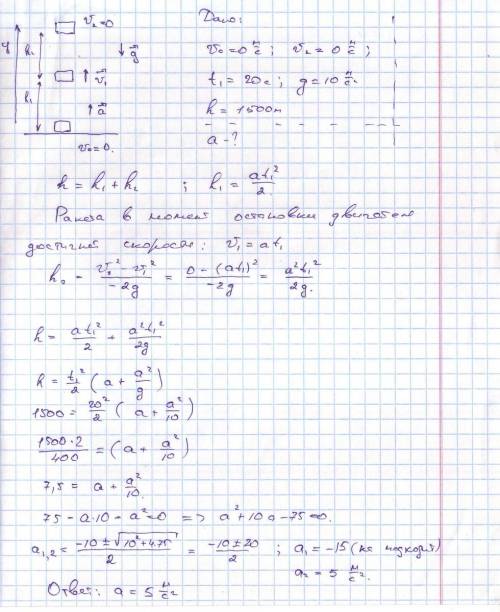 Дано:
v₂=0
y
h₂
g⃗
v₀=0 м/с ; v₂=0 м/с ;
v⃗₁
t₁=20c ; g=10 м/с²
h₁
a⃗
h=1500м
v₀=0.
a-?
h=h₁+h₂ ; h₁ = at₁²/2.
Ракета в момент остановки двигателя
достигнет скорости: v₁=at₁
h₂ = (v₂²-v₁²)/(-2g) = (0-(at₁)²)/(-2g) = a²t₁²/2g.
h = at₁²/2 + a²t₁²/2g
h = t₁²/2 (a + a²/g)
1500 = 20²/2 (a + a²/10)
1500·2/400 = (a + a²/10)
7,5 = a + a²/10.
75 - a·10 - a² = 0 => a²+10a-75=0.
a₁,₂ = (-10 ± √(10²+4·75))/2 = (-10±20)/2 ; a₁=-15 (не подходит)
a₂ = 5 м/с².
Ответ: a = 5 м/с²